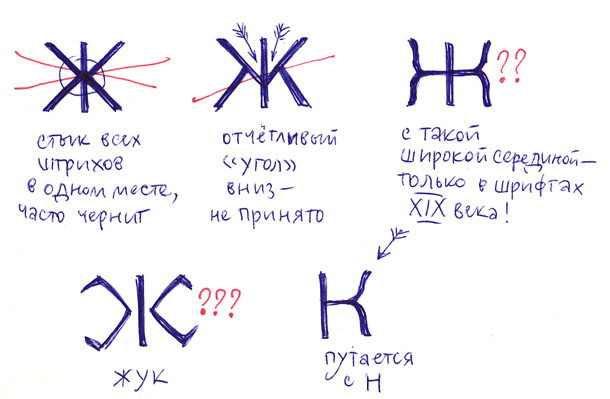 Ж
стык всех
штрихов
в одном месте,
часто чернит
Ж
отчётливый
«угол»
вниз —
не принято
Ж??
с такой
широкой серединой —
только в шрифтах
XIX века!
Ж???
жук
К
путается
с Н